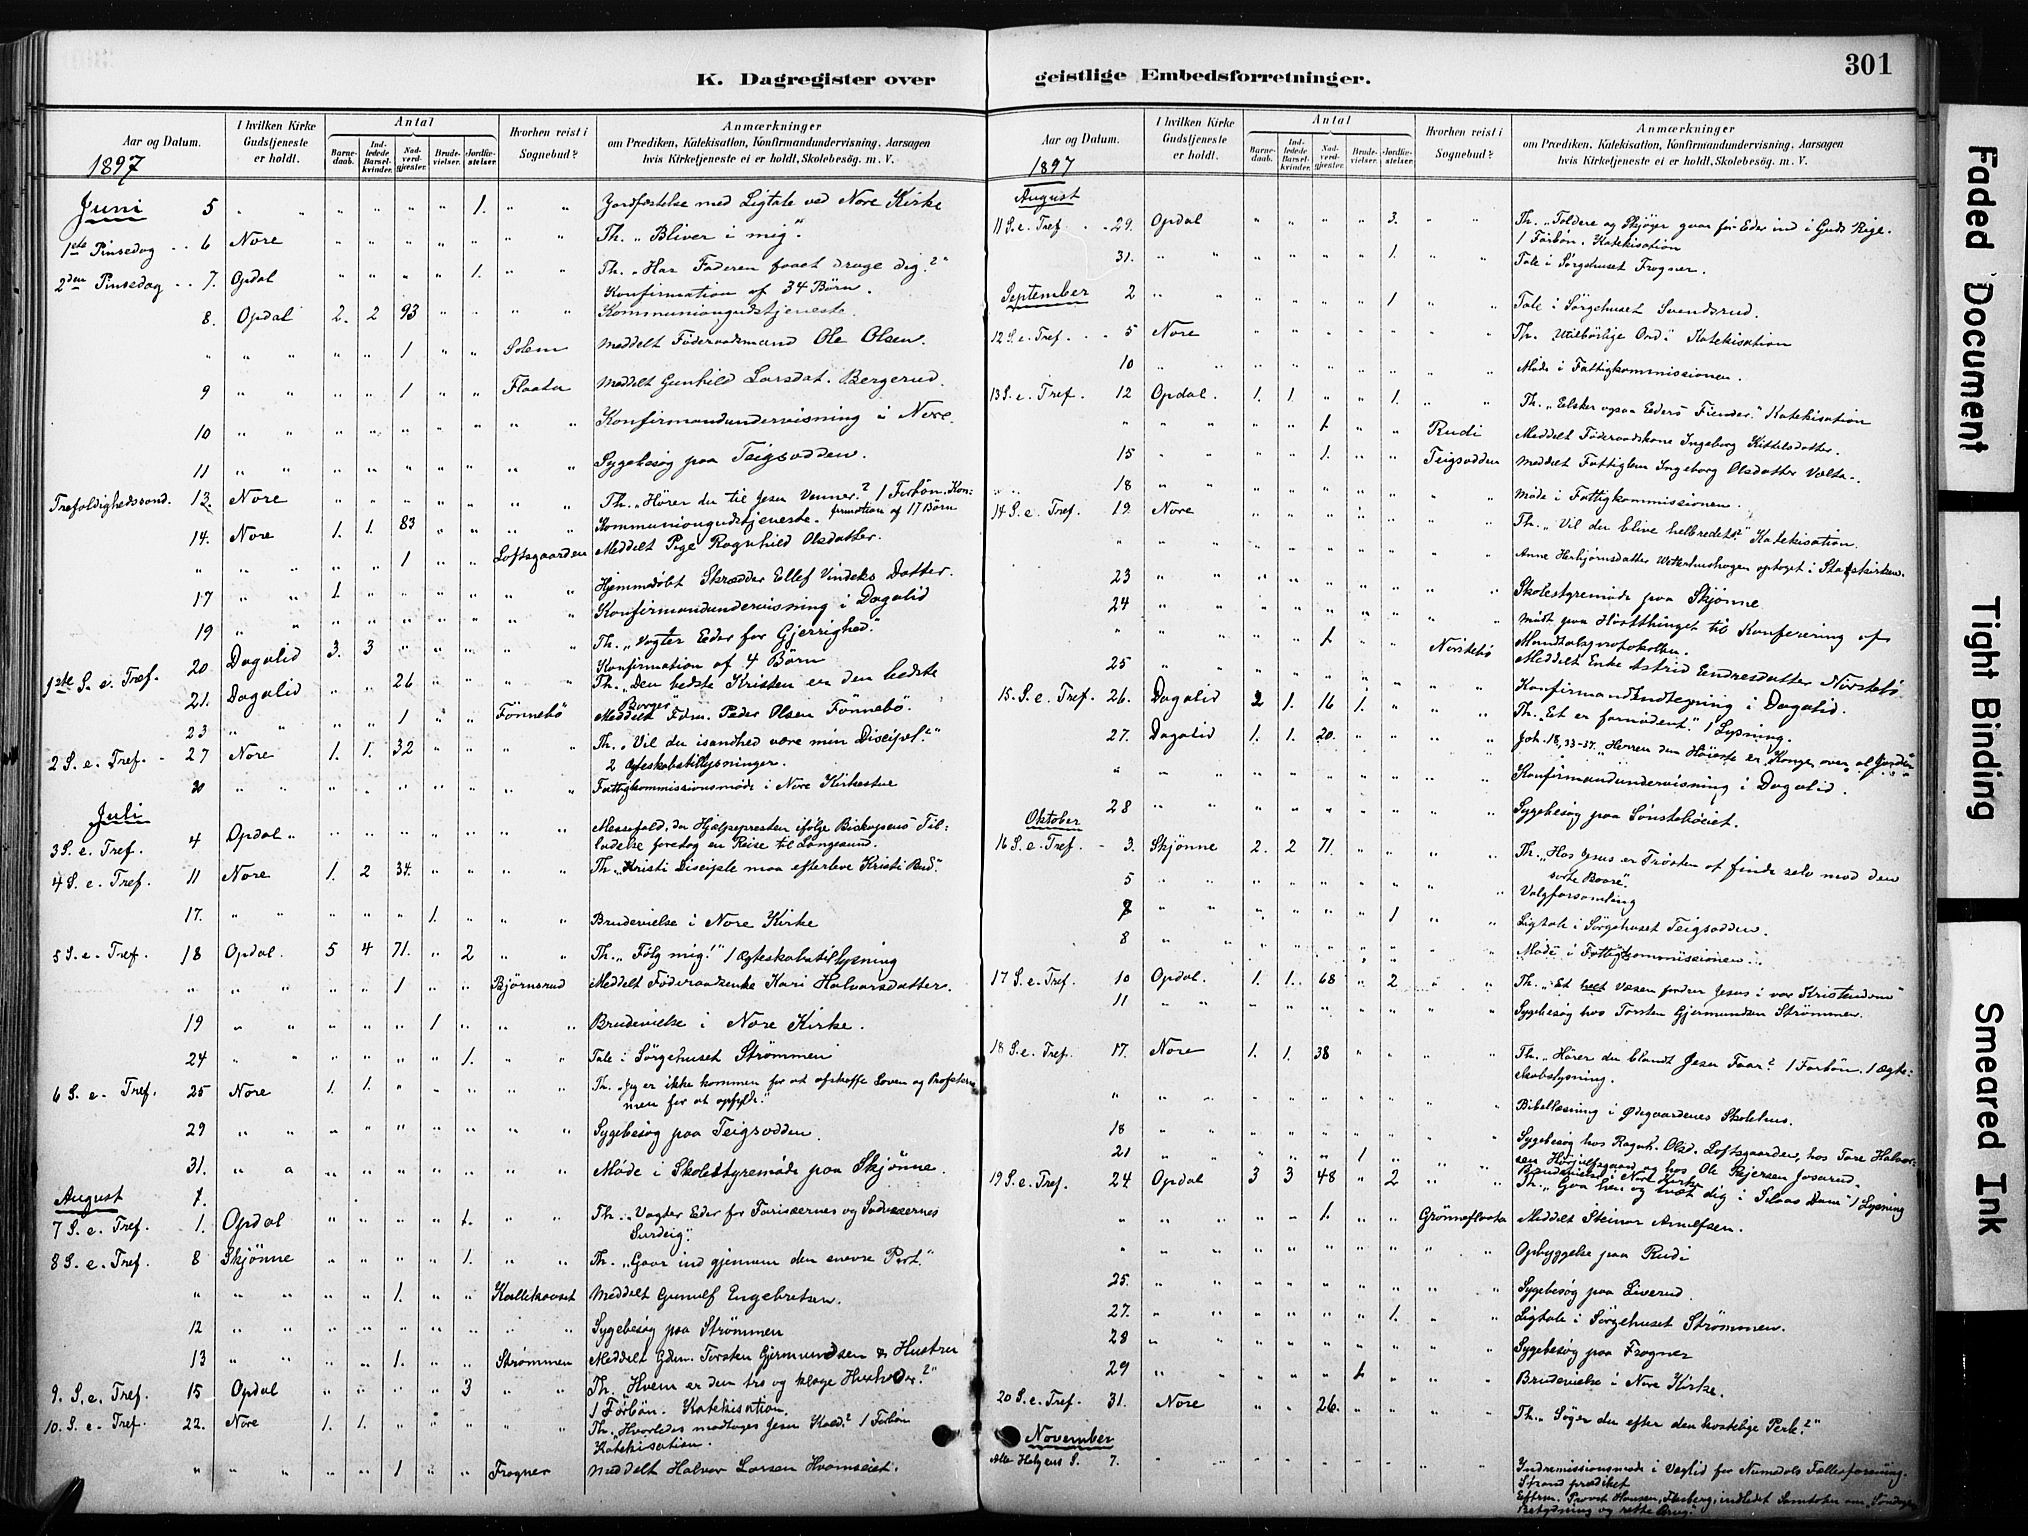 K. Dagregister over
Aar og Datum.
I hvilken Kirke Gudstjeneste er holdt.
Antal
Barne-daab.
Ind-ledede Barsel-kvinder.
Nad-verd-gjester.
Brude-vielser.
Jordfæ-stelser.
Hvorhen reist i Sognebud?
Anmærkninger
om Prædiken, Katekisation, Konfirmandundervisning, Aarsagen
hvis Kirketjeneste ei er holdt, Skolebesøg. m. V.
1897
Juni 5 " " " " " " 1. " " Jordfæstelse med Ligtale ved Nore Kirke
1ste Pinsedag 6 Nore " " " " " " " Th. "Bliver i mig".
2den Pinsedag 7. Opdal " " " " 1. " " Th. "Har Faderen faaet drage dig?"
Konfirmation af 34 Børn.
8. Opdal 2. 2 93 " " " " Kommuniongudstjeneste.
" " " " " 1 " " Solem Meddelt Föderaadsmand Ole Olsen.
9 " " " " 1 " " Flaata Meddelt Gunhild Larsdat. Bergerud.
10 " " " " " " " " " Konfirmandundervisning i Nore.
11 " " " " " " " " " Sygebesøg paa Teigsodden.
Trefoldighedssönd. 13. Nore " " " " " " " Th. "Hører du til Jesu Venner?" 1 Forbön. Kon-
firmation af 17 Børn
14. Nore 1. 1. 83 " " " " Kommuniongudstjeneste.
" " " " " 1 " " Loftsgaarden Meddelt Pige Ragnhild Olsdatter.
17 " " 1. " " " " " " Hjemmedøbt Skrædder Ellef Vindeks Datter.
19 " " " " " " " " " Konfirmandundervisning i Dagalid
1ste S. e. Tref. 20 Dagalid 3. 3 " " " " " Th. "Vogter Eder for Gjerrighed."
Konfirmation af 4 Børn
21. Dagalid " " 26 " " " " Th. "Den bedste Kristen er den bedste
Borger"
23 " " " " 1 " " Fönnebö Meddelt Fdm. Peder Olsen Fönnebö.
2 S. e. Tref. 27 Nore 1. 1. 32 " " " " Th. "Vil du isandhed være min Discipel?"
2 Ægteskabstillysninger.
30 " " " " " " " " " Fattigkommissionsmøde i Nore Kirkestue
Juli
3 S. e. Tref. 4 Opdal " " " " " " " " Messefald, da Hjælpepresten ifølge Biskopens Til-
ladelse foretog en Reise til Langesund.
4 S. e. Tref. 11 Nore 1. 2 34. " " " " Th. "Kristi Disciple maa efterleve Kristi Bud".
17. " " " " " 1. " " " Brudevielse i Nore Kirke
5 S. e. Tref. 18 Opdal. 5 4 71. " 2 " " Th. "Følg mig!" 1 Ægteskabstillysning
" " " " " 1 " " Bjørnsrud Meddelt Föderaadsenke Kari Halvorsdatter.
19 " " " " " 1 " " " Brudevielse i Nore Kirke.
24 " " " " " " 1. " " Tale i Sørgehuset Strømmen
6 S. e. Tref. 25 Nore 1. 1. " " " " " Th. "Jeg er ikke kommen for at ophæffe Loven og Profeterne
men for at opfylde."
29 " " " " " " " " " Sygebesøg paa Teigsodden.
31. " " " " " " " " " Møde i Skolestyremøde paa Skjønne.
August
7 S. e. Tref. 1. Opdal " " " " 1. " " Th. "Vogter Eder for Farisæernes og Sadducæernes
Surdeig".
8 S. e. Tref. 8 Skjønne " " " " 1. " " Th. "Gaar ind gjennem den snevre Port."
" " " " " 1. " " Kallekodset Meddelt Gunulf Engebretsen.
12 " " " " " " " " " Sygebesøg paa Strømmen
13 " " " " 1. " " Strømmen Meddelt Gdm. Torsten Gjermundsen & Hustru
9. S. e. Tref. 15 Opdal " " " " 3 " " Th. "Hvem er den tro og kloge Husholder?"
1 Forbön. Katekisation.
10. S. e. Tref 22. Nore 1. 1. " " " " " Th. "Hvorledes modtages Jesu Kald?" 1 Forbön
Katekisation.
" " " " " 1 " " Frogner Meddelt Halvor Larsen Hvamseiet.
geistlige Embedsforretninger.
301
Aar og Datum.
I hvilken Kirke Gudstjeneste er holdt.
Antal
Barne-daab.
Ind-ledede Barsel-kvinder.
Nad-verd-gjester.
Brude-vielser.
Jordfæ-stelser.
Hvorhen reist i Sognebud?
Anmærkninger
om Prædiken, Katekisation, Konfirmandundervisning, Aarsagen
hvis Kirketjeneste ei er holdt, Skolebesøg. m. V.
1897
August
11 S. e. Tref. 29. Opdal " " " " 3. " " Th. "Toldere og Skjøger gaar før Eder ind i Guds Rige.
1 Forbön. Katekisation
31. " " " " " " 1. " " Tale i Sørgehuset Frogner.
September 2 " " " " " " 1 " " Tale i Sørgehuset Svendsrud.
12 S. e. Tref. 5 Nore " " " " " " " Th. "Utilbörlige Ord." Katekisation
10 " " " " " " " " " Møde i Fattigkommissionen.
13 S. e. Tref. 12 Opdal. 1. 1. " " 1. " " Th. "Elsker ogsaa Eders Fiender." Katekisation
" " " " " 1 " " Rudi Meddelt Föderaadskone Ingeborg Kittelsdatter.
15 " " " " 1. " " Teigsodden Meddelt Fattiglem Ingeborg Olsdatter
18 " " " " " " " " " Møde i Fattigkommissionen.
14 S. e. Tref. 19. Nore " " " " " " " Th. "Vil du blive helbredet?" Katekisation.
" " " " " " " " " " Anne Herbjørnsdatter optaget i Statskirken.
23 " " " " " " " " " Skolestyremøde paa Skjønne
24 " " " " " " " " " Mødt paa Høstthinget til Konferering af
Mandtalsprotokollen.
" " " " " 1 " " Norstebø Meddelt Enke Astrid Endresdatter Norstebö.
25 " " " " " " " " " Konfirmandindtegning i Dagalid.
15. S. e. Tref. 26. Dagalid 2 1. 16 1. " " " Th. "Et er fornødent." 1 Lysning.
27. Dagalid 1. 1. 20. " " " " Joh. 18, 33-37. "Herren den Høieste er Konge over al Jorden"
" " " " " " " " " " Konfirmandundervisning i Dagalid.
28 " " " " " " " " " Sygebesøg paa Sönstebøeiet.
Oktober
16 S. e. Tref. 3. Skjønne 2. 2 71. " " " " Th. "Hos Jesus er Trøsten at finde selv mod den
sorte Baare".
5 " " " " " " " " " Valgforsamling
7 " " " " " " 1 " " Ligtale i Sørgehuset Teigsodden.
8 " " " " " " " " " Møde i Fattigkommissionen.
17 S. e. Tref. 10 Opdal. 1. 1. 68 " 2 " " Th. "Et helt Væsen fordrer Jesus i vor Kristendom"
11 " " " " " " " " " Sygebesøg hos Torsten Gjermundsen Strømmen.
18 S. e. Tref. 17. Nore 1. 1. 38 " " " " Th. "Hører du blandt Jesu Faar?" 1 Forbön. 1 Ægte-
skabslysning.
" " " " " " " " " " Bibellæsning i Ødegaardenes Skolehus.
18 " " " " " " " " " Sygebesøg hos Ragnh. Olsd. Loftsgaarden, hos Tore Halvor-
sen og hos Ole Josarud.
21 " " " " " 1 " " " Brudevielse i Nore Kirke
19 S. e. Tref. 24. Opdal 3 3 48 " 2 " " Th. "Gaa hen og tvæt dig i Siloas Dam" 1 Lysning
" " " " " 1. " " Grönneflaata Meddelt Steinar Arnelfsen.
" " " " " " " " " " Opbyggelse paa Rudi
25. " " " " " " " " " Sygebesøg paa Liverud.
27. " " " " " " 1. " " Ligtale i Sørgehuset Strømmen.
28 " " " " " " " " " Sygebesøg paa Frogner
29 " " " " " 1 " " " Brudevielse i Nore Kirke.
20 S. e. Tref. 31. Nore " " 26. " " " " Th. "Søger du efter den kostelige Perle?"
November
Alle Helgens S. 7. " " " " " " " " " Indremissionsmøde i Veglid for Numedals Fællesforening.
Strand prædiket
Efterm. Provst Hansen, Flesberg, indledet Samtalen om "Søndagens
Betydning og rette Brug."
Faded Document
Tight Binding
Smeared Ink